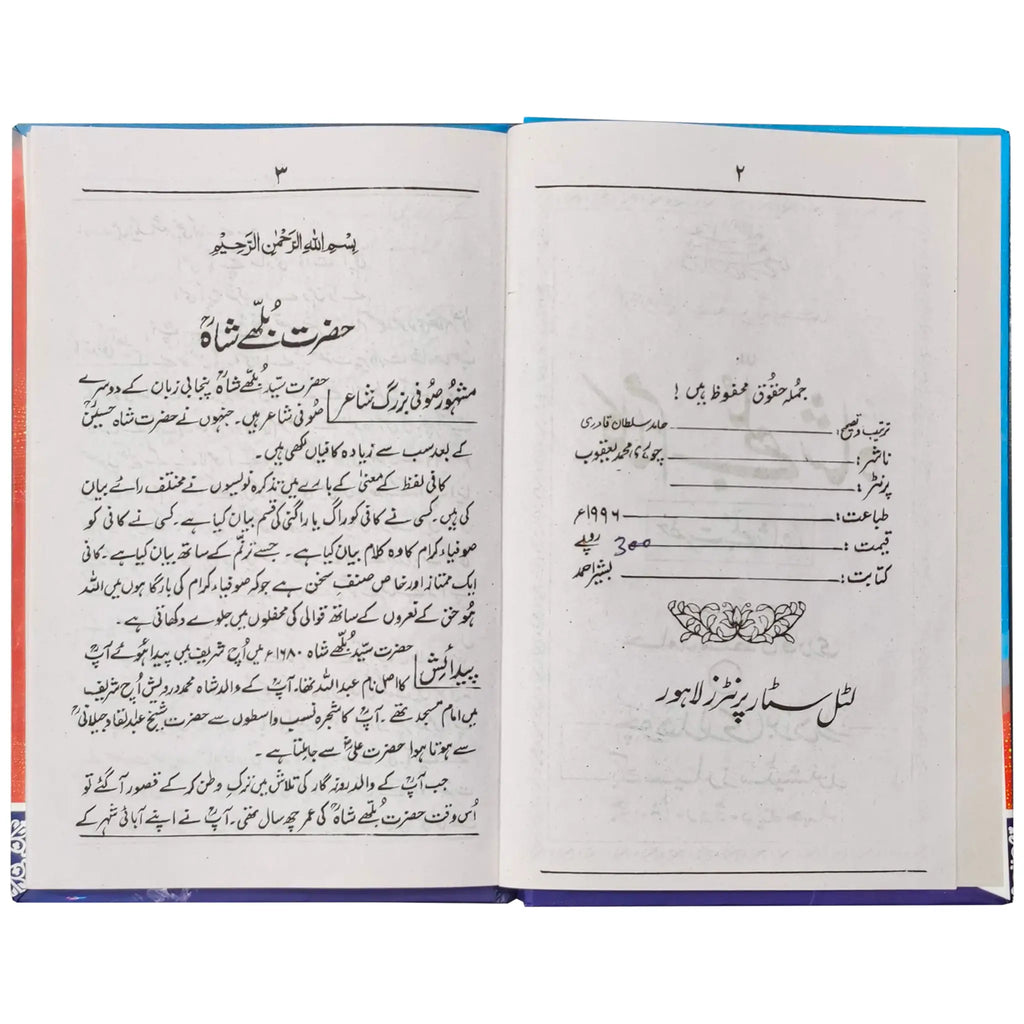 ۲
جملہ حقوق محفوظ ہیں !
ترتیب و تصحیح: حامد سلطان قادری
ناشر: چوہدری محمد یعقوب
پرنٹر:
طباعت: ۱۹۹۶ء
قیمت: 300 روپے
کتابت: بشیر احمد
لٹل سٹار پرنٹرز لاہور
۳
بِسْمِ اللهِ الرَّحْمٰنِ الرَّحِيْمِ
حضرت بُلّھے شاہؒ
مشہور صُوفی بزرگ شاعر حضرت سیّد بُلّھے شاہؒ پنجابی زبان کے دوسرے
صُوفی شاعر ہیں۔ جنہوں نے حضرت شاہ حسینؒ
کے بعد سب سے زیادہ کافیاں لکھی ہیں۔
کافی لفظ کے معنیٰ کے بارے میں تذکرہ نویسوں نے مختلف رائے بیان
کی ہیں۔ کسی نے کافی کو راگ یا راگنی کی قسم بیان کیا ہے۔ کسی نے کافی کو
صوفیاء کرام کا وہ کلام بیان کیا ہے۔ جسے ترنّم کے ساتھ بیان کیا ہے۔ کافی
ایک ممتاز اور خاص صنفِ سخن ہے جو کہ صوفیاء کرام کی بارگاہوں میں اللہ
ھُو حق کے نعروں کے ساتھ قوالی کی محفلوں میں جلوے دکھاتی ہے۔
پیدائش حضرت سیّد بُلّھے شاہ ۱۶۸۰ء میں اُچ شریف میں پیدا ہُوئے آپؒ
کا اصل نام عبد اللہ تھا۔ آپ کے والد شاہ محمد درویش اُچ شریف
میں امام مسجد تھے۔ آپؒ کا شجرہ نسب واسطوں سے حضرت شیخ عبدالقادر جیلانیؒ
سے ہوتا ہوا حضرت علیؓ سے جا ملتا ہے۔
جب آپؒ کے والد روزگار کی تلاش میں ترکِ وطن کر کے قصور آ گئے تو
اُس وقت حضرت بُلّھے شاہؒ کی عمر چھ سال تھی۔ آپؒ نے اپنے آبائی شہر کے